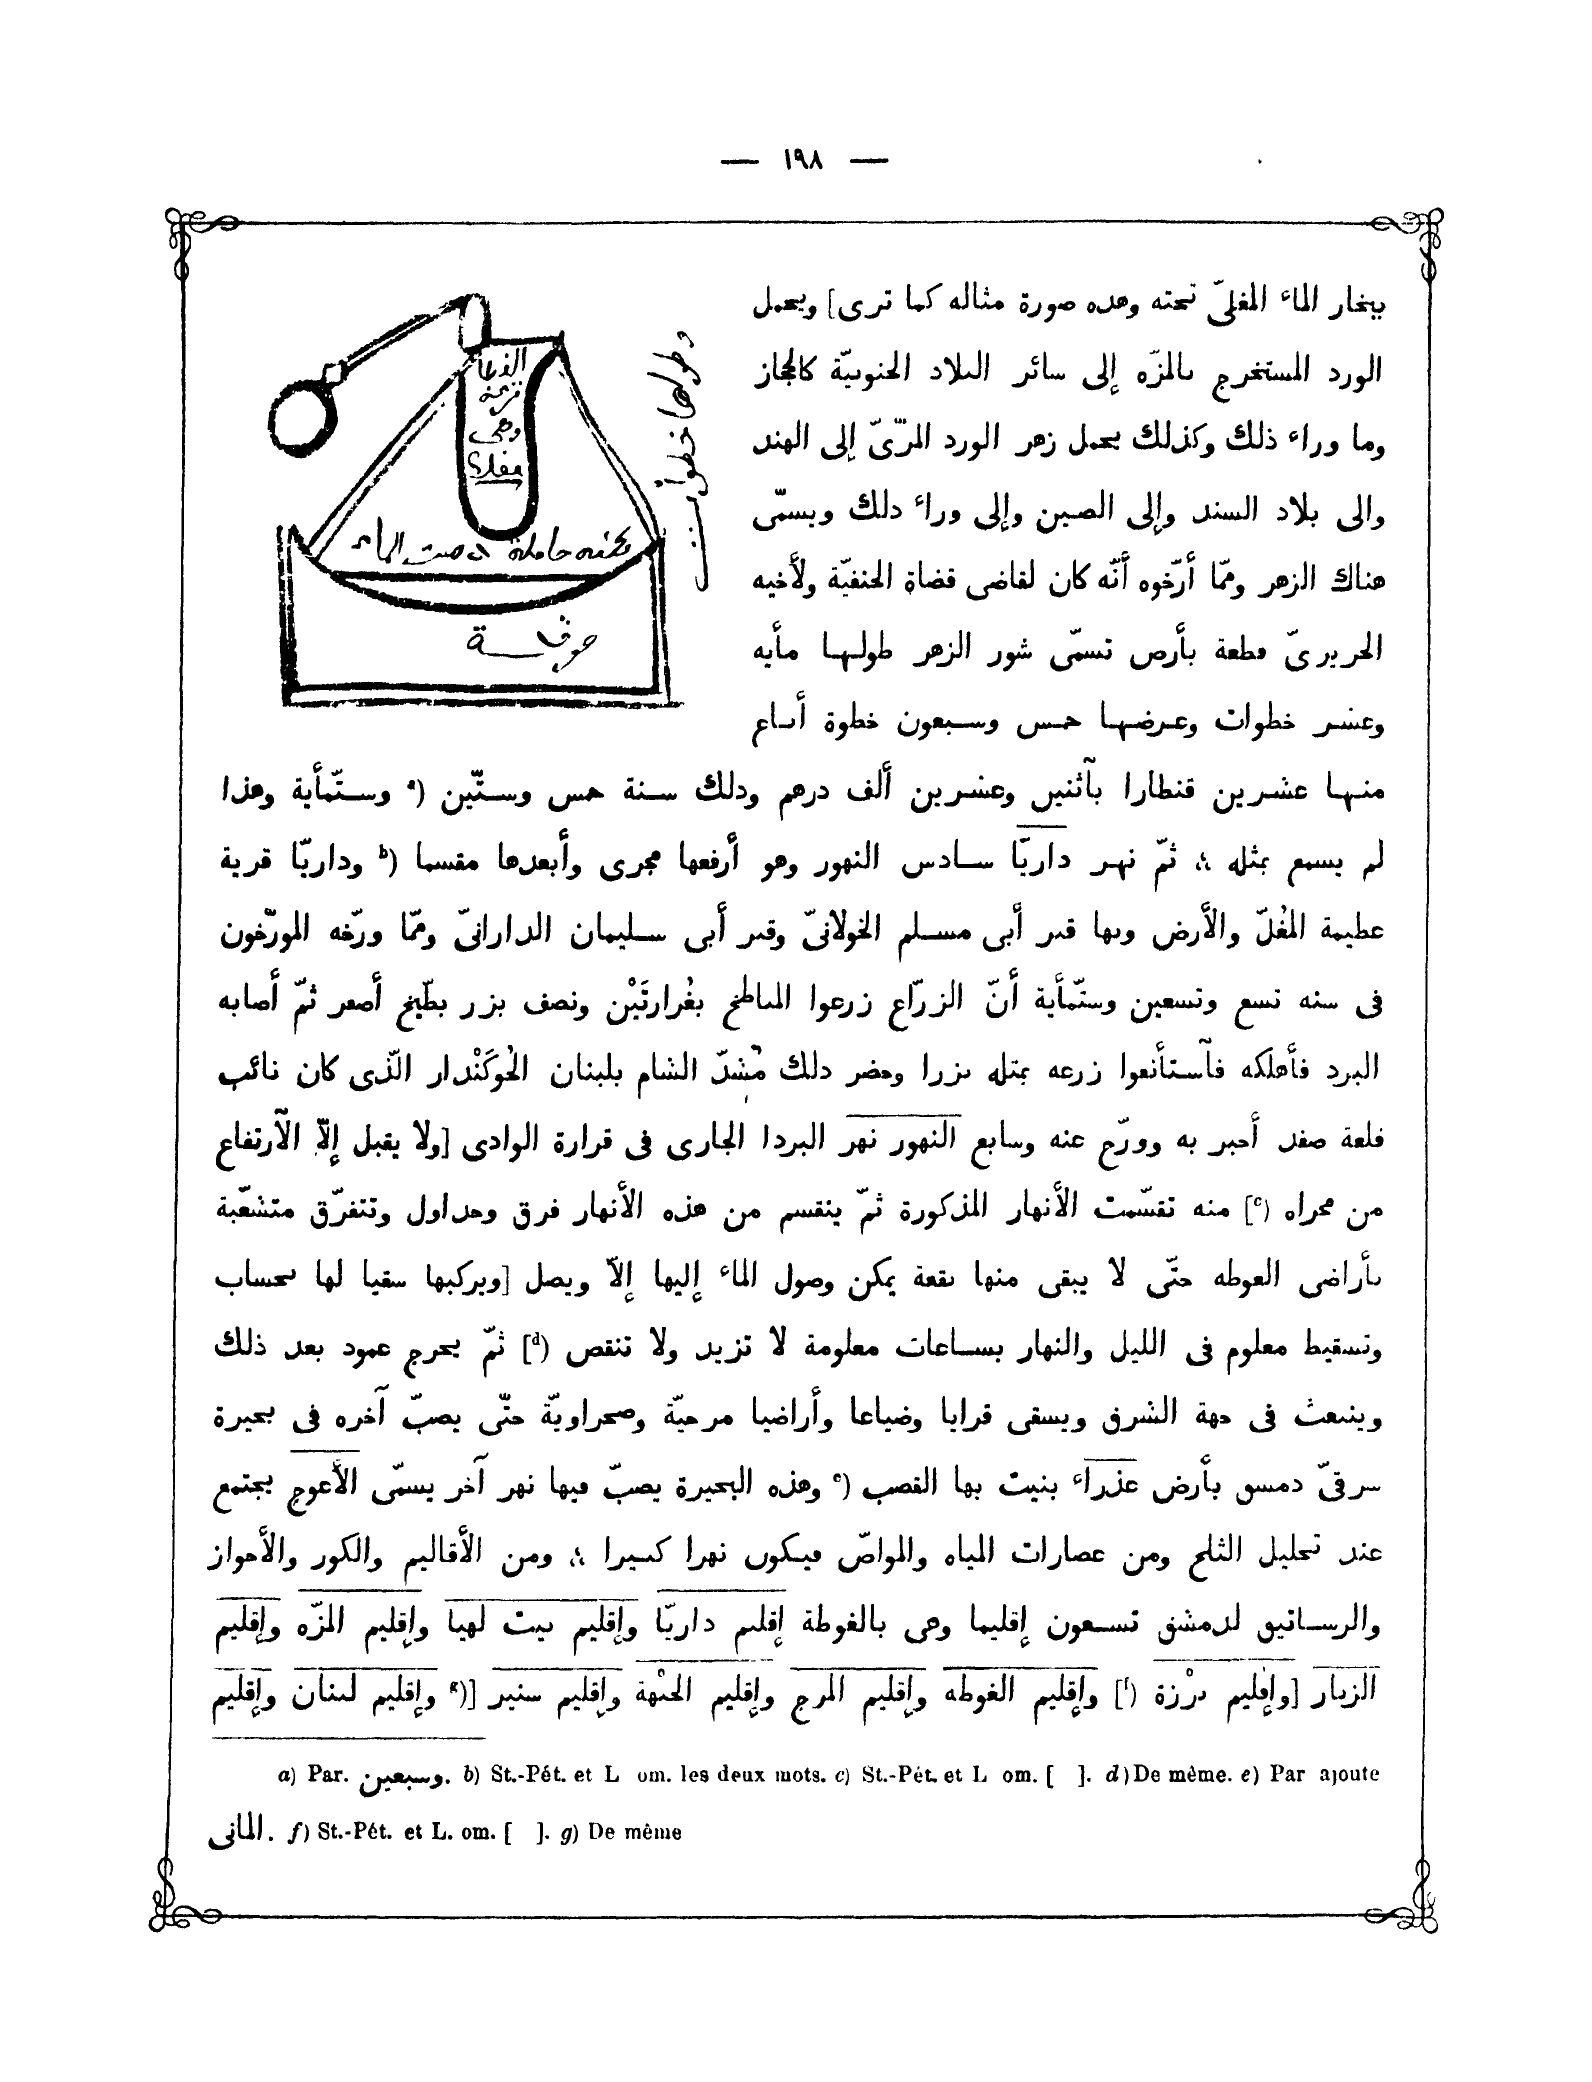 — ١٩٨ —
ببخار الماء المغلىّ تحته وهذه صورة مثاله كما ترى] ويحمل
الورد المستخرج بالمزّه إلى سائر البلاد الجنوبيّة كالحجاز
وما وراء ذلك وكذلك يحمل زهر الورد المزّىّ إلى الهند
والى بلاد السند وإلى الصين وإلى وراء ذلك ويسمّى
هناك الزهر وممّا أرّخوه أنّه كان لقاضى قضاة الحنفيّة ولأخيه
الحريرىّ قطعة بأرض تسمّى شور الزهر طولها مأية
وعشر خطوات وعرضها خمس وسبعون خطوة أباع
منها عشرين قنطارا بآثنين وعشرين ألف درهم وذلك سنة خمس وستّين (a وستّمأية وهذا
لم يسمع بمثله ۞ ثمّ نهر داريّا سادس النهور وهو أرفعها مجرى وأبعدها مقسما (b وداريّا قرية
عظيمة المُغلّ والأرض وبها قبر أبى مسلم الخولانىّ وقبر أبى سليمان الدارانىّ وممّا ورّخه المورّخون
فى سنه تسع وتسعين وستّمأية أنّ الزرّاع زرعوا المباطخ بغُرارتَيْن ونصف بزر بطّيخ أصفر ثمّ أصابه
البرد فأهلكه فآستأنعوا زرعه بمثله بزرا وحضر ذلك مُشدّ الشام بلبنان الجُوكَنْدار الّذى كان نائب
قلعة صفد أخبر به وورّخ عنه وسابع النهور نهر البردا الجارى فى قرارة الوادى [ولا يقبل إلّا الآرتفاع
من مجراه (c] منه تقسّمت الأنهار المذكورة ثمّ ينقسم من هذه الأنهار فرق وجداول وتتفرّق متشعّبة
بأراضى الغوطه حتّى لا يبقى منها بقعة يمكن وصول الماء إليها إلّا ويصل [ويركبها سقيا لها بحساب
وتسقيط معلوم فى الليل والنهار بساعات معلومة لا تزيد ولا تنقص (d] ثمّ يخرج عمود بعد ذلك
وينبعث فى جهة الشرق ويسقى قرايا وضياعا وأراضيا مرجيّة وصحراويّة حتّى يصبّ آخره فى بحيرة
شرقىّ دمشق بأرض عذراء بنيت بها القصب (e وهذه البحيرة يصبّ فيها نهر آخر يسمّى الأعوج يجتمع
عند تحليل الثلج ومن عصارات المياه والمواصّ فيكون نهرا كبيرا ۞ ومن الأقاليم والكور والأحواز
والرساتيق لدمشق تسعون إقليما وهى بالغوطة إقليم داريّا وإقليم بيت لهيا وإقليم المزّه وإقليم
الزبار [وإقليم برْزة (f] وإقليم الغوطه وإقليم المرج وإقليم الجبْهة وإقليم سنير [(g وإقليم لبنان وإقليم
a) Par. وسبعين. b) St.-Pét. et L om. les deux mots. c) St.-Pét. et L om. [ ]. d) De même. e) Par ajoute
المانى. f) St.-Pét. et L. om. [ ]. g) De même
وطولها خطوا
وهى
بكفه حاملة
الماء